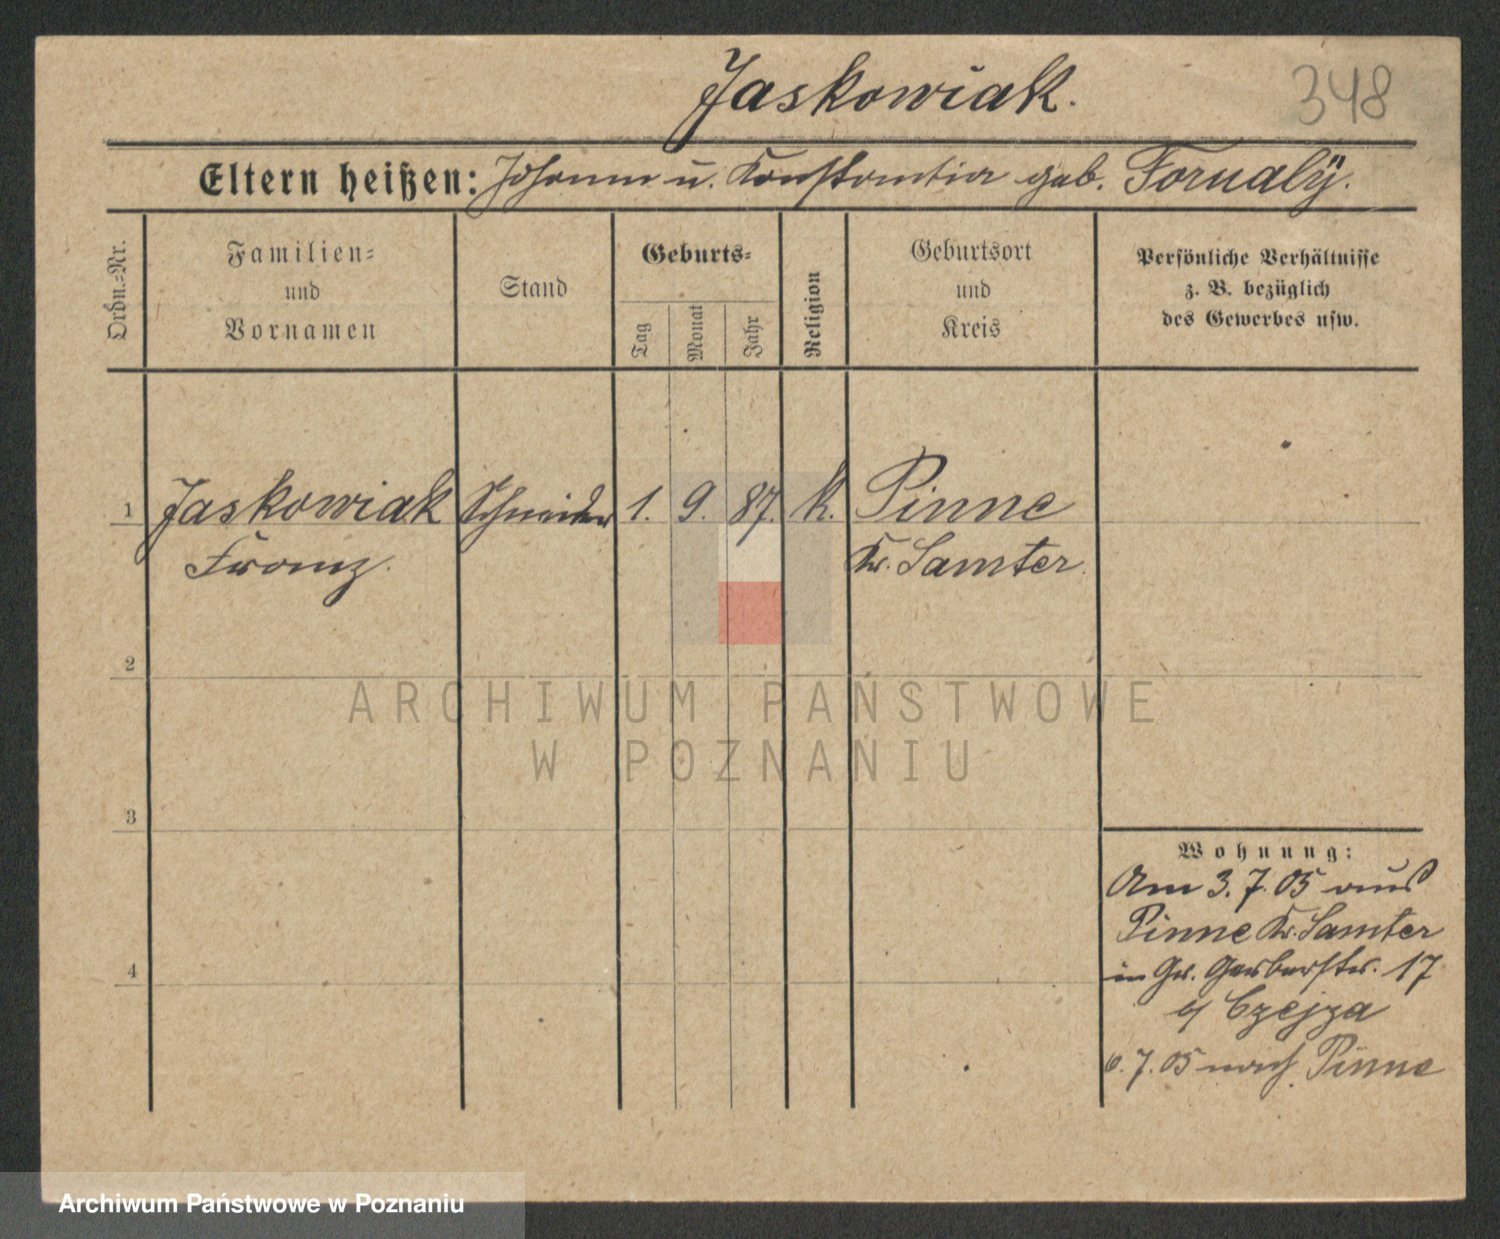 Jaskowiak.
348
Eltern heißen: Johann u. Konstantia geb. Fornalÿ.
Ordn.=Nr.
Familien=
und
Vornamen
Stand
Geburts=
Tag
Monat
Jahr
Religion
Geburtsort
und
Kreis
Persönliche Verhältnisse
z. B. bezüglich
des Gewerbes usw.
1 Jaskowiak Schneider 1. 9. 87. k. Pinne
Franz. Kr. Samter.
2
3
4
Wohnung:
Am 3.7.05 aus
Pinne Kr. Samter
in Gr. Gerberstr. 17
b/ Czejza
6.7.05 nach Pinne
ARCHIWUM PAŃSTWOWE
W POZNANIU
Archiwum Państwowe w Poznaniu